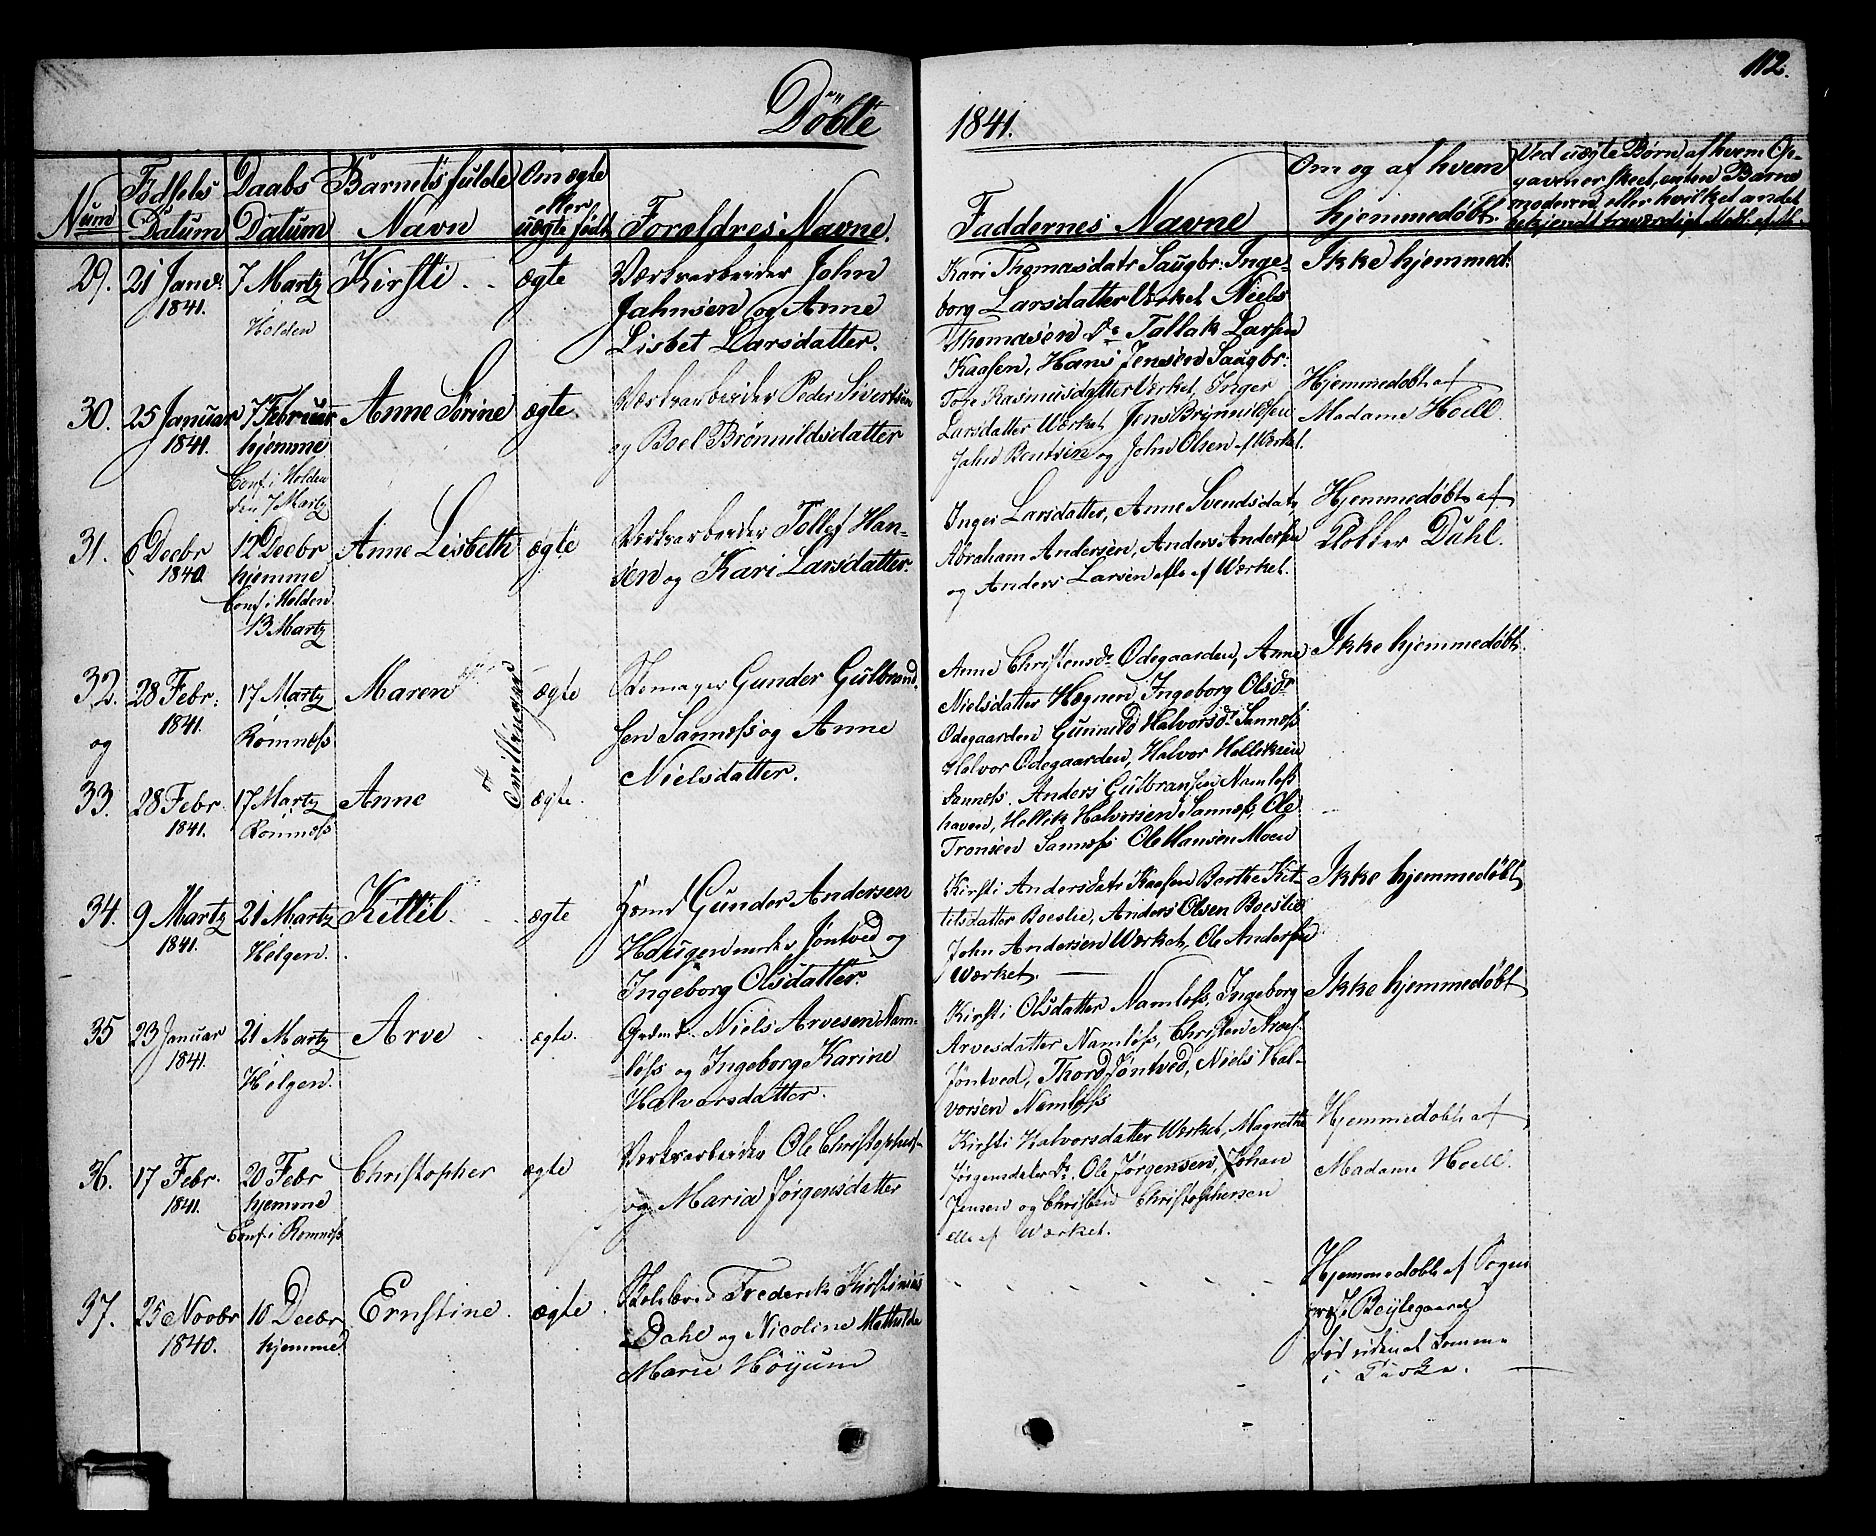 112.
Döbte 1841.
Num
Födsels Datum
Daabs Datum
Barnets fulde Navn
Om ægte eller uægte født
Forældres Navne.
Faddernes Navne
Om og af hvem hjemmedøbt.
Ved uægte Børn af hvem Op-
gaven er skeet, enten Barne
moderen eller hvilket andet
29.
21 Januar
1841.
7 Martz
Holden
Kirsti
ægte
Værksarbeider John
Jahnsen og Anne
Lisbet Larsdatter.
Kari Thomasdatr Saugbr: Inge-
borg Larsdatter Værket Niels
Thomasen Do Tallak Larsen
Kaasen, Hans Jensen Saugbr:
Ikke hjemmed:
30.
25 Januar
1841.
7 Februar
hjemme
Conf. i Holden
den 7 Martz
Anne Sørine
ægte.
Værksarbeider Peder Sivertsen
og Boel Brønnildsdatter
Tore Rasmusdatter Værket, Inger
Larsdatter Værket, Jens Brynnildsen
Jahn Bentsen og John Olsen af Værket.
Hjemmedøbt af
Madame Hoell.
31.
6 Decbr
1840.
12 Decbr
hjemme
Conf. i Holden
13 Martz
Anne Lisbeth
ægte
Værksarbeider Tollef Han-
sen og Kari Larsdatter.
Inger Larsdatter, Anne Svendsdatr,
Abraham Andersen, Anders Andersen
og Anders Larsen alle af Værket.
Hjemmedøbt af
Klokker Dahl.
32.
og
28 Febr:
1841.
17 Martz
Romnæss
Maren
Tvillinger
ægte
Skomager Gunder Gulbrand-
sen Sannæss og Anne
Nielsdatter.
Anne Christensdr Ödegaarden, Anne
Nielsdatter Hægnen, Ingeborg Olsdr
Ödegaarden Gunnild Halvorsdr Sannæss
Halvor Ödegaarden, Halvor Helliksen
Sannæss, Anders Gulbransen Namløss
haven, Hellik Halvorsen Sannæss, Ole
Tronsen Sannæss Ole Hansen Moen
Ikke hjemmedøbt.
33.
28 Febr.
1841.
17 Martz
Romnæss
Anne
ægte.
34.
9 Martz
1841.
21 Martz
Helgen.
Kittil.
ægte
Gunder Andersen
Haugen under Jöntved og
Ingeborg Olsdatter.
Kirsti Andersdatr Kaasen Berthe Kit-
tilsdatter Boeslie, Anders Olsen Boeslie
John Andersen Værket, Ole Andersen
Værket.
Ikke hjemmedøbt
35
23 Januar
1841.
21 Martz
Helgen.
Arve
ægte.
Gaardmd. Niels Arvesen Nam-
løss og Ingeborg Karine
Halvorsdatter.
Kirsti Olsdatter Namløss, Ingeborg
Arvesdatter Namløss, Christen Arves.
Jöntved, Thord Jöntved, Niels Hal-
vorsen Namløss
Ikke hjemmedøbt
36.
17 Febr.
1841.
20 Febr
hjemme
Conf. i Romnæss
Christopher
ægte
Værksarbeider Ole Christophers.
og Maria Jørgensdatter
Kirsti Halvorsdatter Værket, Magrethe
Jørgensdatter Do. Ole Jørgensen, Johan
Jensen og Christen Christophersen
alle af Værket.
Hjemmedøbt af
Madame Hoell.
37.
25 Novbr
1840.
10 Decbr
hjemme.
Ernstine.
ægte.
Frederik Kirstinius
Dahl og Nicoline Mathilde
Marie Höyum
Hjemmedøbt af Sogne
præst Beylegaard
død uden at komme
i Kirke.